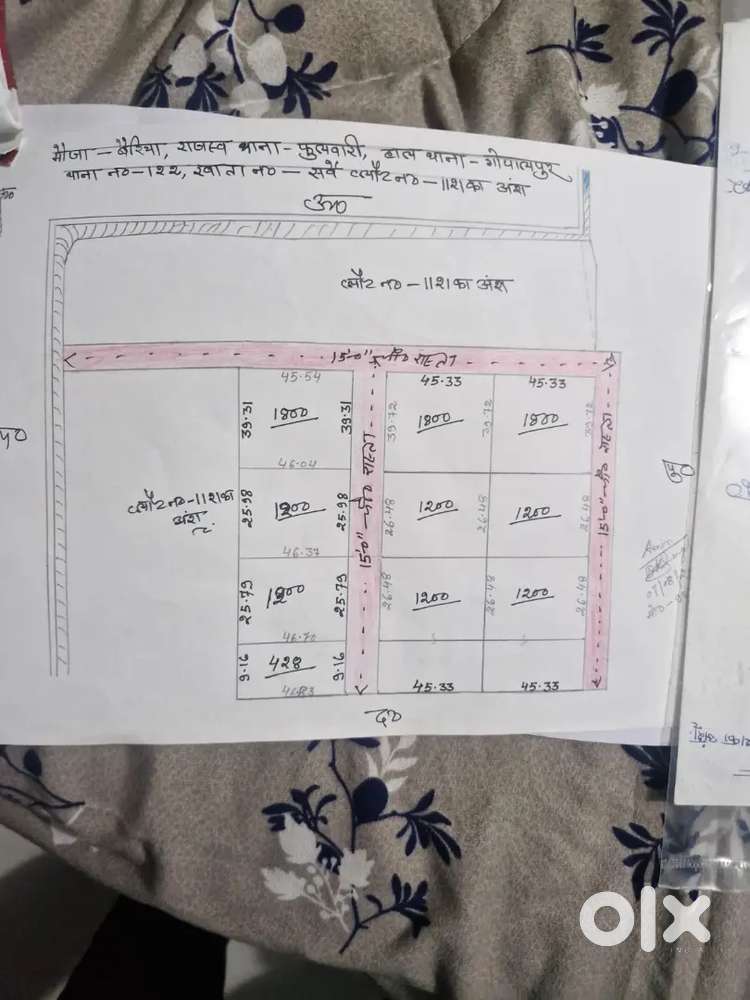 मौजा – बैरिया, राजस्व थाना – फुलवारी, हाल थाना – गोपालपुर
थाना नं०-१२२, खाता नं० – सर्वे प्लौट नं० – 1121 का अंश
उ०
प्लौट नं० – 1121 का अंश
15'-0" – चौ० रास्ता
45.54
45.33
45.33
39.31
1800
39.31
39.72
1800
39.72
1800
39.72
46.04
15'-0" – चौ० रास्ता
15'-0" – चौ० रास्ता
पू०
प०
प्लौट नं० – 1121 का
अंश
25.98
1200
25.98
26.48
1200
26.48
1200
26.48
46.37
25.79
1200
25.79
26.48
1200
26.48
1200
26.48
46.70
9.16
428
9.16
46.83
45.33
45.33
द०
olx